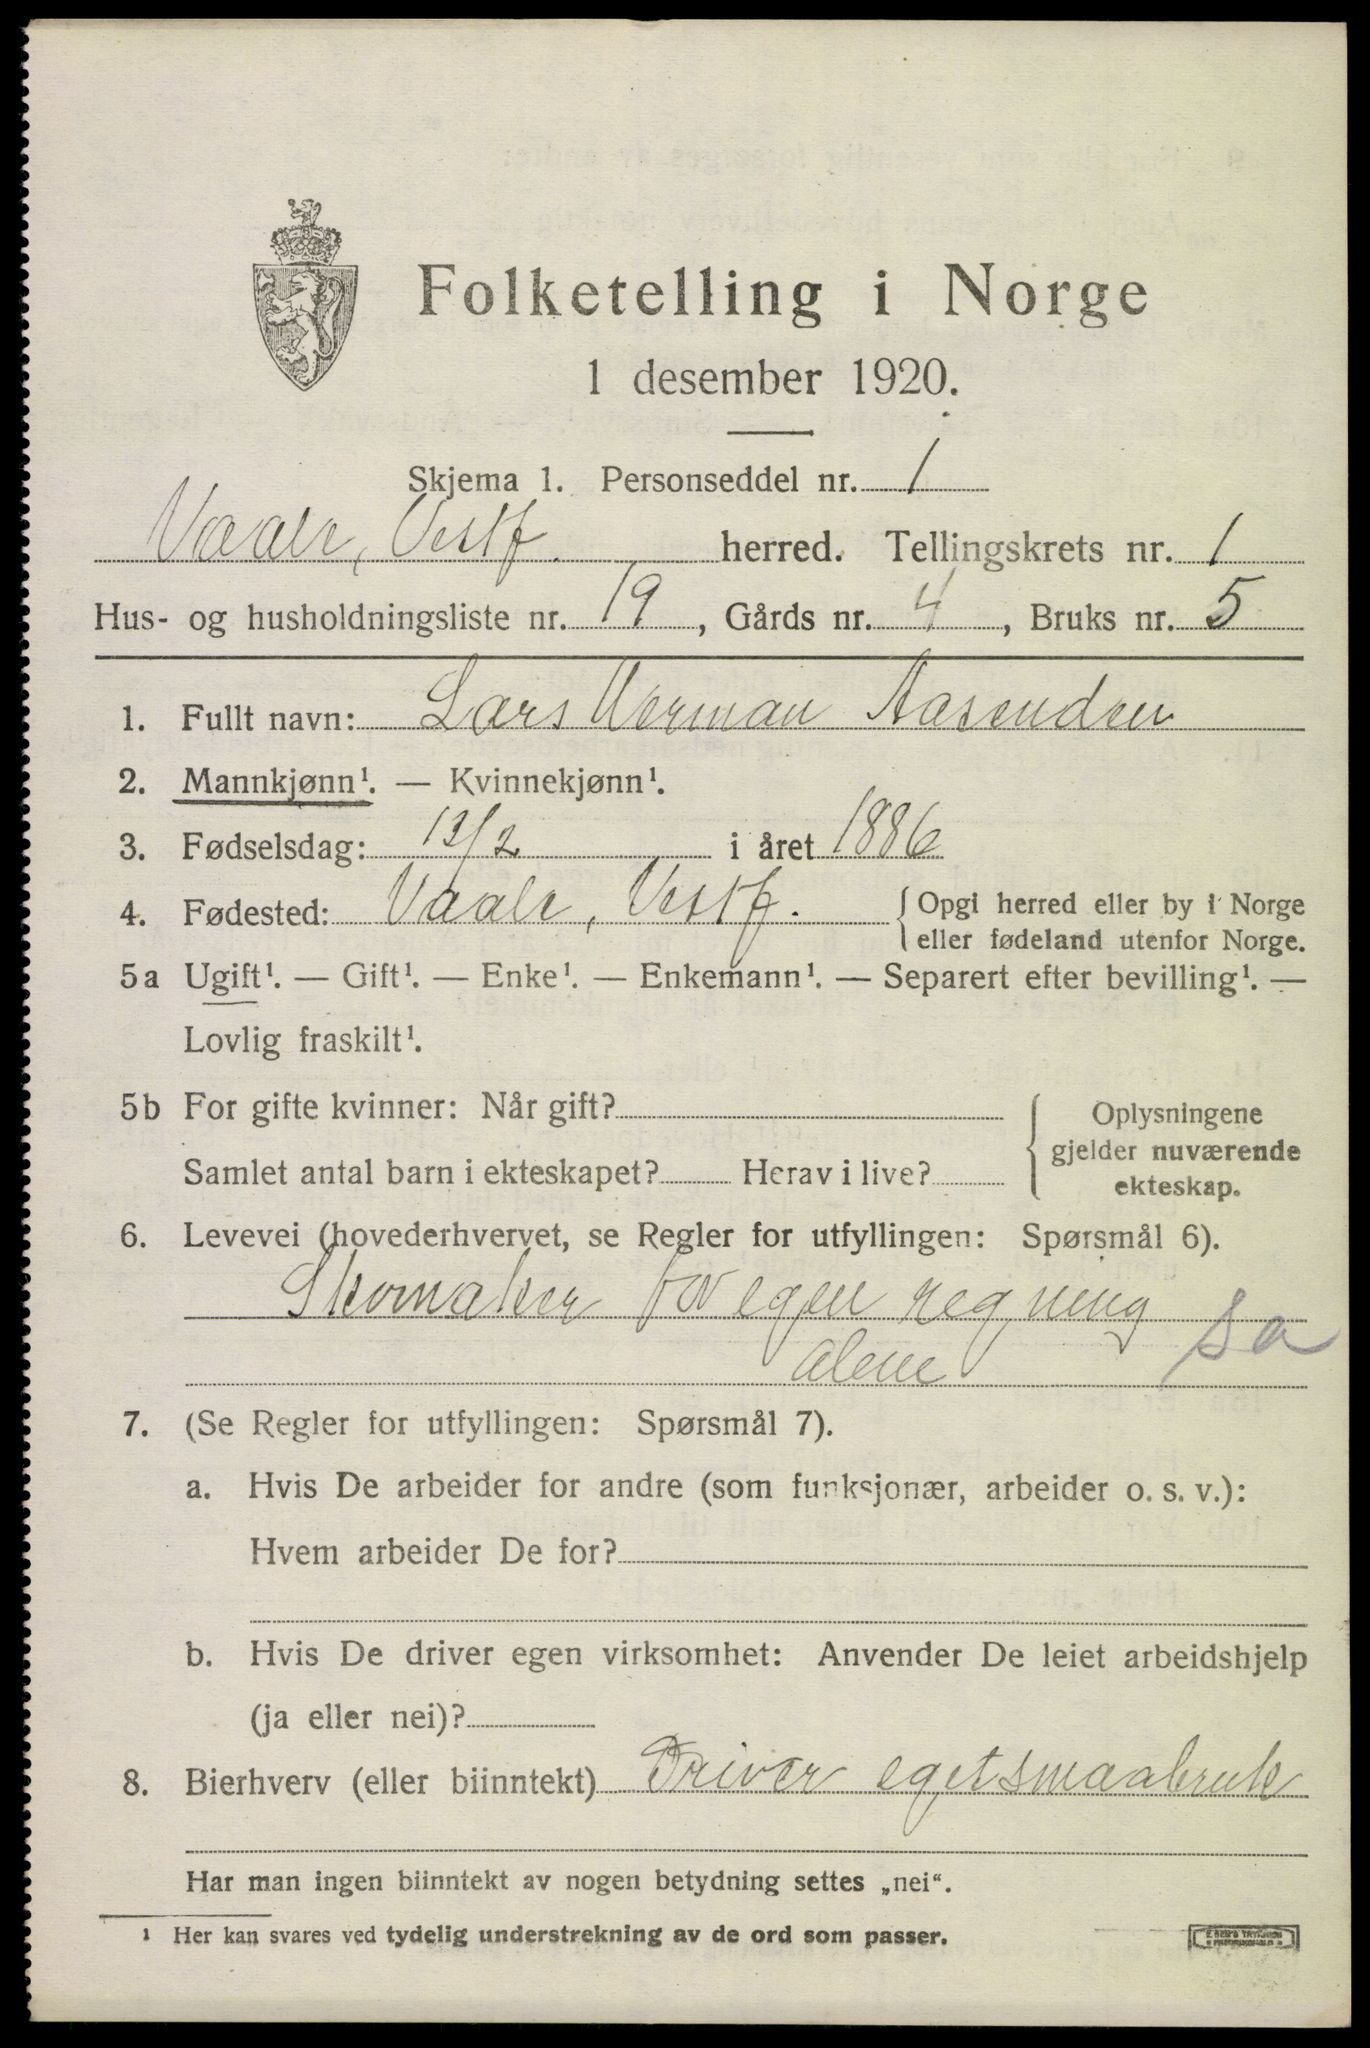 Folketelling i Norge
1 desember 1920.
Skjema 1. Personseddel nr. 1
Vaale, Vestf. herred. Tellingskrets nr. 1
Hus- og husholdningsliste nr. 19, Gårds nr. 4, Bruks nr. 5
1. Fullt navn: Lars Herman Aasenden
2. Mannkjønn¹. — Kvinnekjønn¹.
3. Fødselsdag: 13/2 i året 1886
4. Fødested: Vaale, Vestf. { Opgi herred eller by i Norge
eller fødeland utenfor Norge.
5a Ugift¹. — Gift¹. — Enke¹. — Enkemann¹. — Separert efter bevilling¹. —
Lovlig fraskilt¹.
5b For gifte kvinner: Når gift?
Samlet antal barn i ekteskapet? Herav i live?
Oplysningene
gjelder nuværende
ekteskap.
6. Levevei (hovederhvervet, se Regler for utfyllingen: Spørsmål 6).
Skomaker for egen regning
alene sa
7. (Se Regler for utfyllingen: Spørsmål 7).
a. Hvis De arbeider for andre (som funksjonær, arbeider o. s. v.):
Hvem arbeider De for?
b. Hvis De driver egen virksomhet: Anvender De leiet arbeidshjelp
(ja eller nei)?
8. Bierhverv (eller biinntekt) Driver eget smaabruk
Har man ingen biinntekt av nogen betydning settes „nei“.
¹ Her kan svares ved tydelig understrekning av de ord som passer.